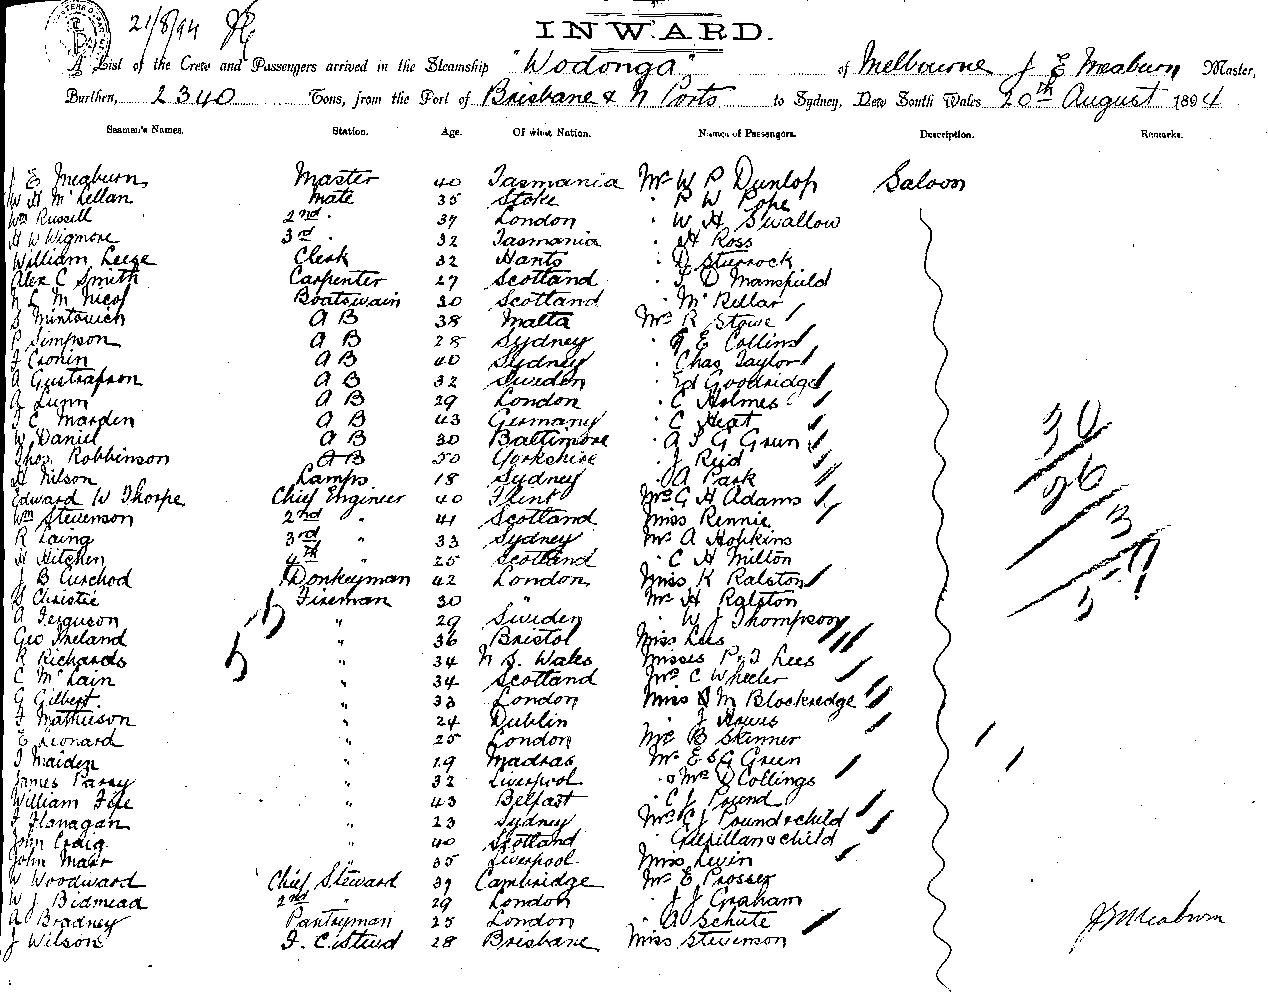 21/8/94
INWARD.
A List of the Crew and Passengers arrived in the Steamship "Wodonga" of Melbourne J E Meaburn Master,
Burthen, 2340 Tons, from the Port of Brisbane & N Ports to Sydney, New South Wales 20th August 1894
Seamen's Names. Station. Age. Of what Nation. Names of Passengers. Description. Remarks.
J E Meaburn Master 40 Tasmania Mr W P Dunlop Saloon
W H McLellan Mate 35 Stoke " P W Pope
Wm Russell 2nd " 37 London " W H Swallow
H W Wigmore 3rd " 32 Tasmania " H Ross
William Leese Clerk 32 Hants " D Sturrock
Alex C Smith Carpenter 27 Scotland " J D Mansfield
N L McNicol Boatswain 30 Scotland " McKellar
S Mintovich A B 38 Malta Mrs R Stowe
P Simpson A B 28 Sydney " E Collins
J Cronin A B 40 Sydney " Chas Taylor
A Gustafson A B 32 Sweden " Ed Goodridge
A Lunn A B 29 London " C Holmes
J E Marden A B 43 Germany " C Heat
W Daniel A B 30 Baltimore " A J G Green
Thos. Robbinson A B 50 Yorkshire " J Reid
H Nilson Lamps 18 Sydney " A Park
Edward W Thorpe Chief Engineer 40 Flint Mrs G H Adams
Wm Stevenson 2nd " 41 Scotland Miss Rennie
R Laing 3rd " 33 Sydney Mr A Hopkins
H Hitchen 4th " 25 Scotland " C H Milton
J B Curchod Donkeyman 42 London Miss K Ralston
S Christie Fireman 30 " Mr H Ralston
A Ferguson " 29 Sweden " W J Thompson
Geo Ireland " 36 Bristol Miss Lees
R Richards " 34 N S. Wales Misses P & J Lees
C McLain " 34 Scotland Mrs C Wheeler
G Gilbert " 33 London Miss M Blockredge
J Mathieson " 24 Dublin " J Hawes
E Leonard " 25 London Mr B Skinner
J Maiden " 19 Madras Mr E S G Green
James Parry " 32 Liverpool " Mrs D Collings
William Fife " 43 Belfast " C J Pound
J Flanagan " 23 Sydney Mrs C J Pound & child
John Craig " 40 Scotland " Gilfillan & child
John Marr " 35 Liverpool Miss Levin
W Woodward Chief Steward 39 Cambridge Mr E Prosser
W J Bidmead 2nd " 29 London " J J Graham
A Bradney Pantryman 25 London " A Schute
J Wilson F. C. Stewd 28 Brisbane Miss Stevenson
30
26
3
59
55
J E Meaburn